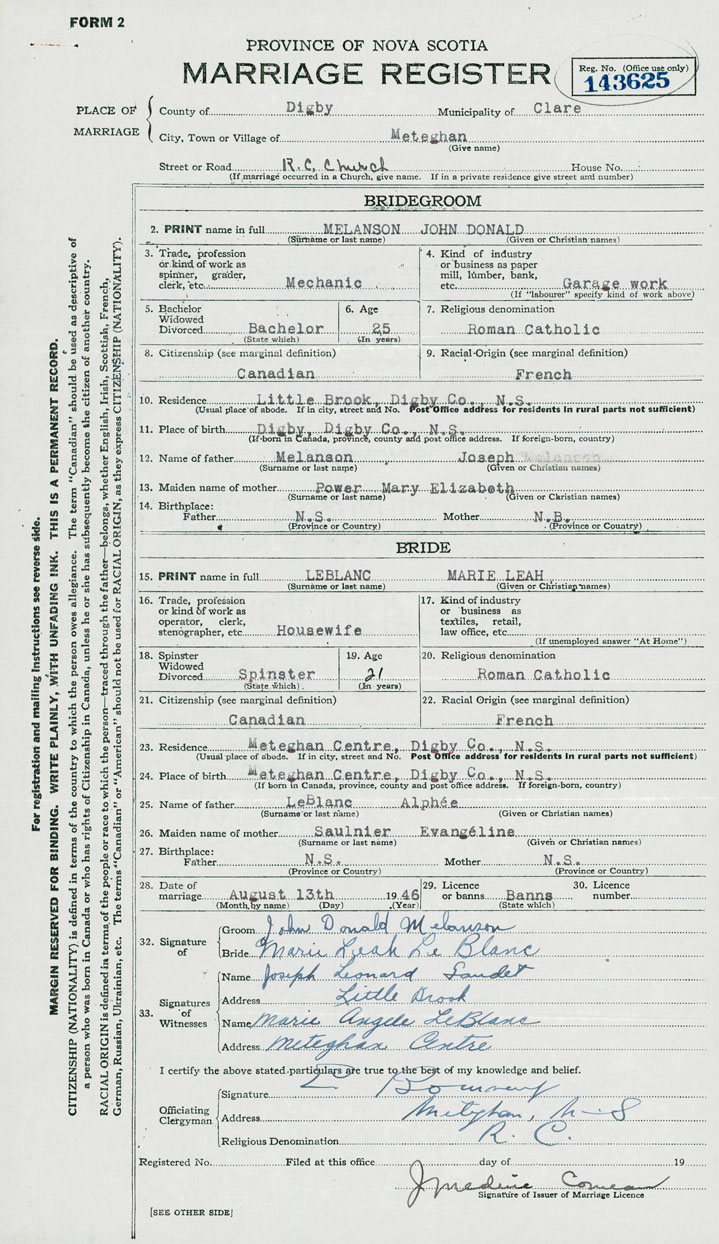 FORM 2
PROVINCE OF NOVA SCOTIA
MARRIAGE REGISTER
Reg. No. (Office use only)
143625
PLACE OF MARRIAGE
County of Digby Municipality of Clare
City, Town or Village of Meteghan
(Give name)
Street or Road R.C. Church House No.
(If marriage occurred in a Church, give name. If in a private residence give street and number)
BRIDEGROOM
2. PRINT name in full MELANSON JOHN DONALD
(Surname or last name) (Given or Christian names)
3. Trade, profession or kind of work as spinner, grader, clerk, etc. Mechanic
4. Kind of industry or business as paper mill, lumber, bank, etc. Garage work
(If "labourer" specify kind of work above)
5. Bachelor Widowed Divorced Bachelor
(State which)
6. Age 25
(In years)
7. Religious denomination
Roman Catholic
8. Citizenship (see marginal definition)
Canadian
9. Racial-Origin (see marginal definition)
French
10. Residence Little Brook, Digby Co., N.S.
(Usual place of abode. If in city, street and No. Post Office address for residents in rural parts not sufficient)
11. Place of birth Digby, Digby Co., N.S.
(If born in Canada, province, county and post office address. If foreign-born, country)
12. Name of father Melanson Joseph
(Surname or last name) (Given or Christian names)
13. Maiden name of mother Power Mary Elizabeth
(Surname or last name) (Given or Christian names)
14. Birthplace:
Father N.S. Mother N.B.
(Province or Country) (Province or Country)
BRIDE
15. PRINT name in full LEBLANC MARIE LEAH
(Surname or last name) (Given or Christian names)
16. Trade, profession or kind of work as operator, clerk, stenographer, etc. Housewife
17. Kind of industry or business as textiles, retail, law office, etc.
(If unemployed answer "At Home")
18. Spinster Widowed Divorced Spinster
(State which)
19. Age 21
(In years)
20. Religious denomination
Roman Catholic
21. Citizenship (see marginal definition)
Canadian
22. Racial Origin (see marginal definition)
French
23. Residence Meteghan Centre, Digby Co., N.S.
(Usual place of abode. If in city, street and No. Post Office address for residents in rural parts not sufficient)
24. Place of birth Meteghan Centre, Digby Co., N.S.
(If born in Canada, province, county and post office address. If foreign-born, country)
25. Name of father LeBlanc Alphée
(Surname or last name) (Given or Christian names)
26. Maiden name of mother Saulnier Evangéline
(Surname or last name) (Given or Christian names)
27. Birthplace:
Father N.S. Mother N.S.
(Province or Country) (Province or Country)
28. Date of marriage August 13th 1946
(Month by name) (Day) (Year)
29. Licence or banns Banns
(State which)
30. Licence number
32. Signature of
Groom John Donald Melanson
Bride Marie Leah Le Blanc
33. Signatures of Witnesses
Name Joseph Leonard Gaudet
Address Little Brook
Name Marie Angele LeBlanc
Address Meteghan Centre
I certify the above stated particulars are true to the best of my knowledge and belief.
Officiating Clergyman
Signature
Address Meteghan, N-S
Religious Denomination R. C.
Registered No. Filed at this office day of 19
Comeau
Signature of Issuer of Marriage Licence
[SEE OTHER SIDE]
For registration and mailing instructions see reverse side.
MARGIN RESERVED FOR BINDING. WRITE PLAINLY, WITH UNFADING INK. THIS IS A PERMANENT RECORD.
CITIZENSHIP (NATIONALITY) is defined in terms of the country to which the person owes allegiance. The term "Canadian" should be used as descriptive of
a person who was born in Canada or who has rights of Citizenship in Canada, unless he or she has subsequently become the citizen of another country.
RACIAL ORIGIN is defined in terms of the people or race to which the person—traced through the father—belongs, whether English, Irish, Scottish, French,
German, Russian, Ukrainian, etc. The terms "Canadian" or "American" should not be used for RACIAL ORIGIN, as they express CITIZENSHIP (NATIONALITY).